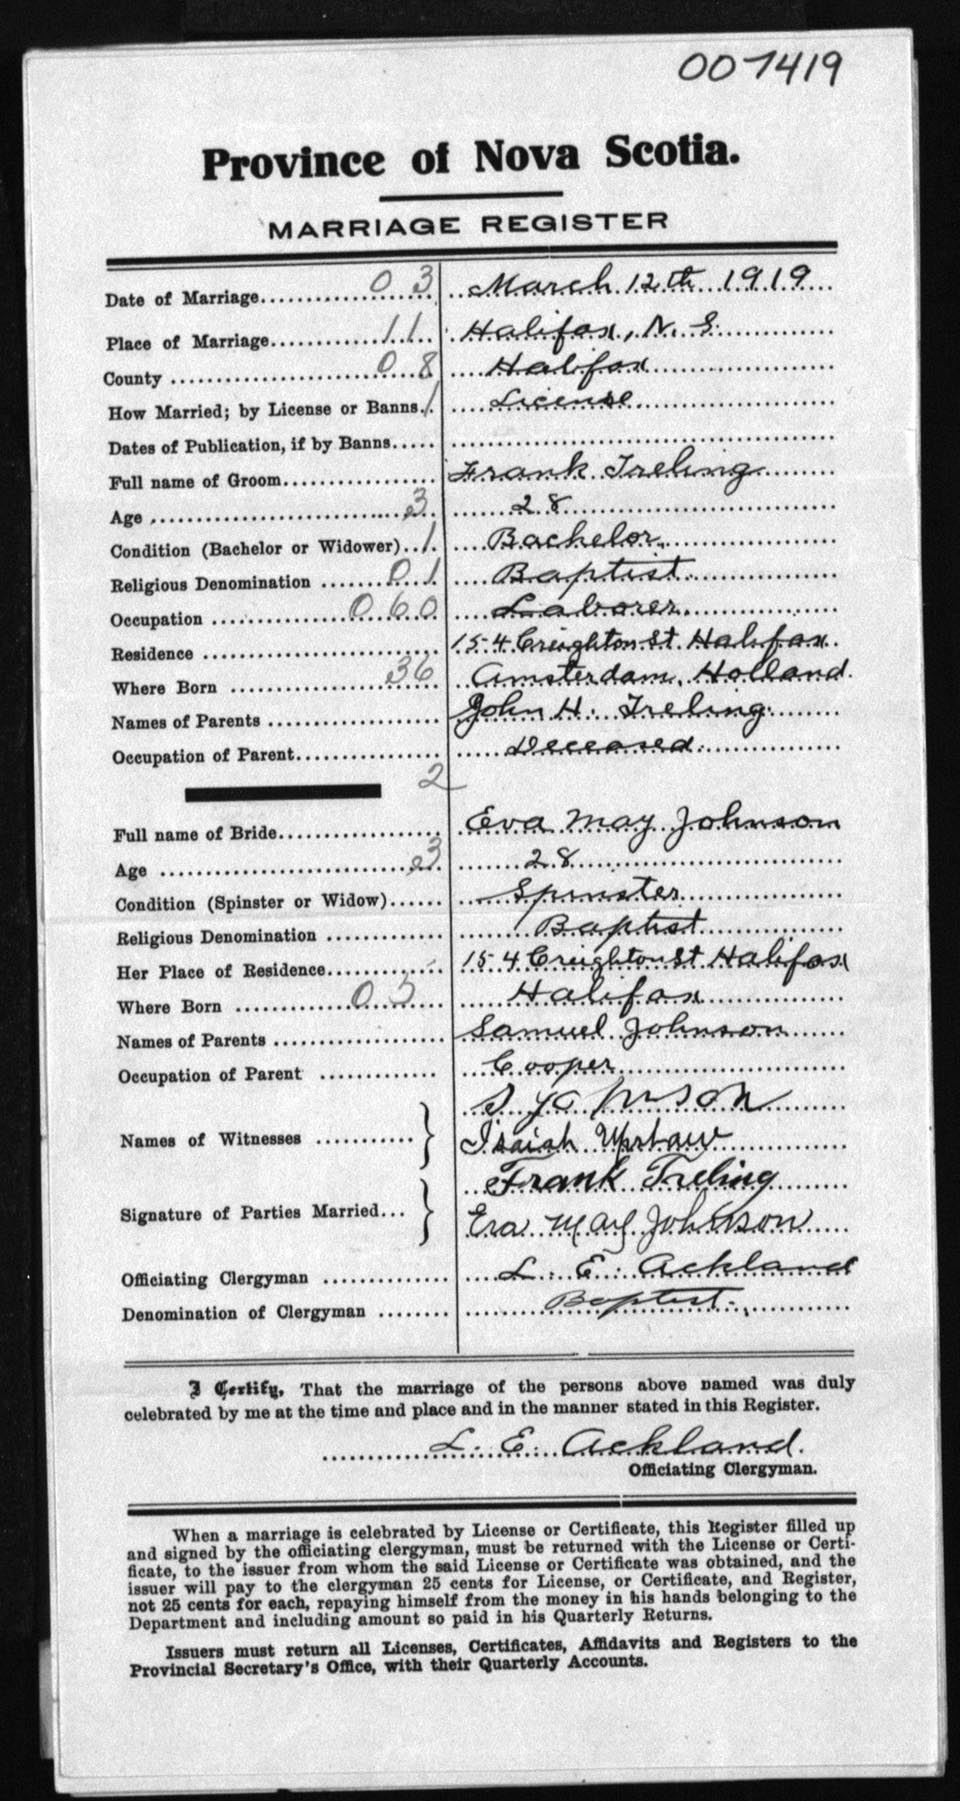 007419
Province of Nova Scotia.
MARRIAGE REGISTER
Date of Marriage 03 March 12th 1919
Place of Marriage 11 Halifax, N. S.
County 08 Halifax
How Married; by License or Banns 1 License
Dates of Publication, if by Banns
Full name of Groom Frank Treling
Age 3 28
Condition (Bachelor or Widower) 1 Bachelor
Religious Denomination 01 Baptist
Occupation 060 Laborer
Residence 154 Creighton St Halifax
Where Born 36 Amsterdam, Holland
Names of Parents John H. Treling
Occupation of Parent Deceased
2
Full name of Bride Eva May Johnson
Age 3 28
Condition (Spinster or Widow) Spinster
Religious Denomination Baptist
Her Place of Residence 154 Creighton St Halifax
Where Born 05 Halifax
Names of Parents Samuel Johnson
Occupation of Parent Cooper
S
Names of Witnesses Isaiah
Frank Treling
Signature of Parties Married Eva May Johnson
Officiating Clergyman L. E. Ackland
Denomination of Clergyman Baptist
I Certify, That the marriage of the persons above named was duly
celebrated by me at the time and place and in the manner stated in this Register.
L. E. Ackland.
Officiating Clergyman.
When a marriage is celebrated by License or Certificate, this Register filled up
and signed by the officiating clergyman, must be returned with the License or Certi-
ficate, to the issuer from whom the said License or Certificate was obtained, and the
issuer will pay to the clergyman 25 cents for License, or Certificate, and Register,
not 25 cents for each, repaying himself from the money in his hands belonging to the
Department and including amount so paid in his Quarterly Returns.
Issuers must return all Licenses, Certificates, Affidavits and Registers to the
Provincial Secretary's Office, with their Quarterly Accounts.